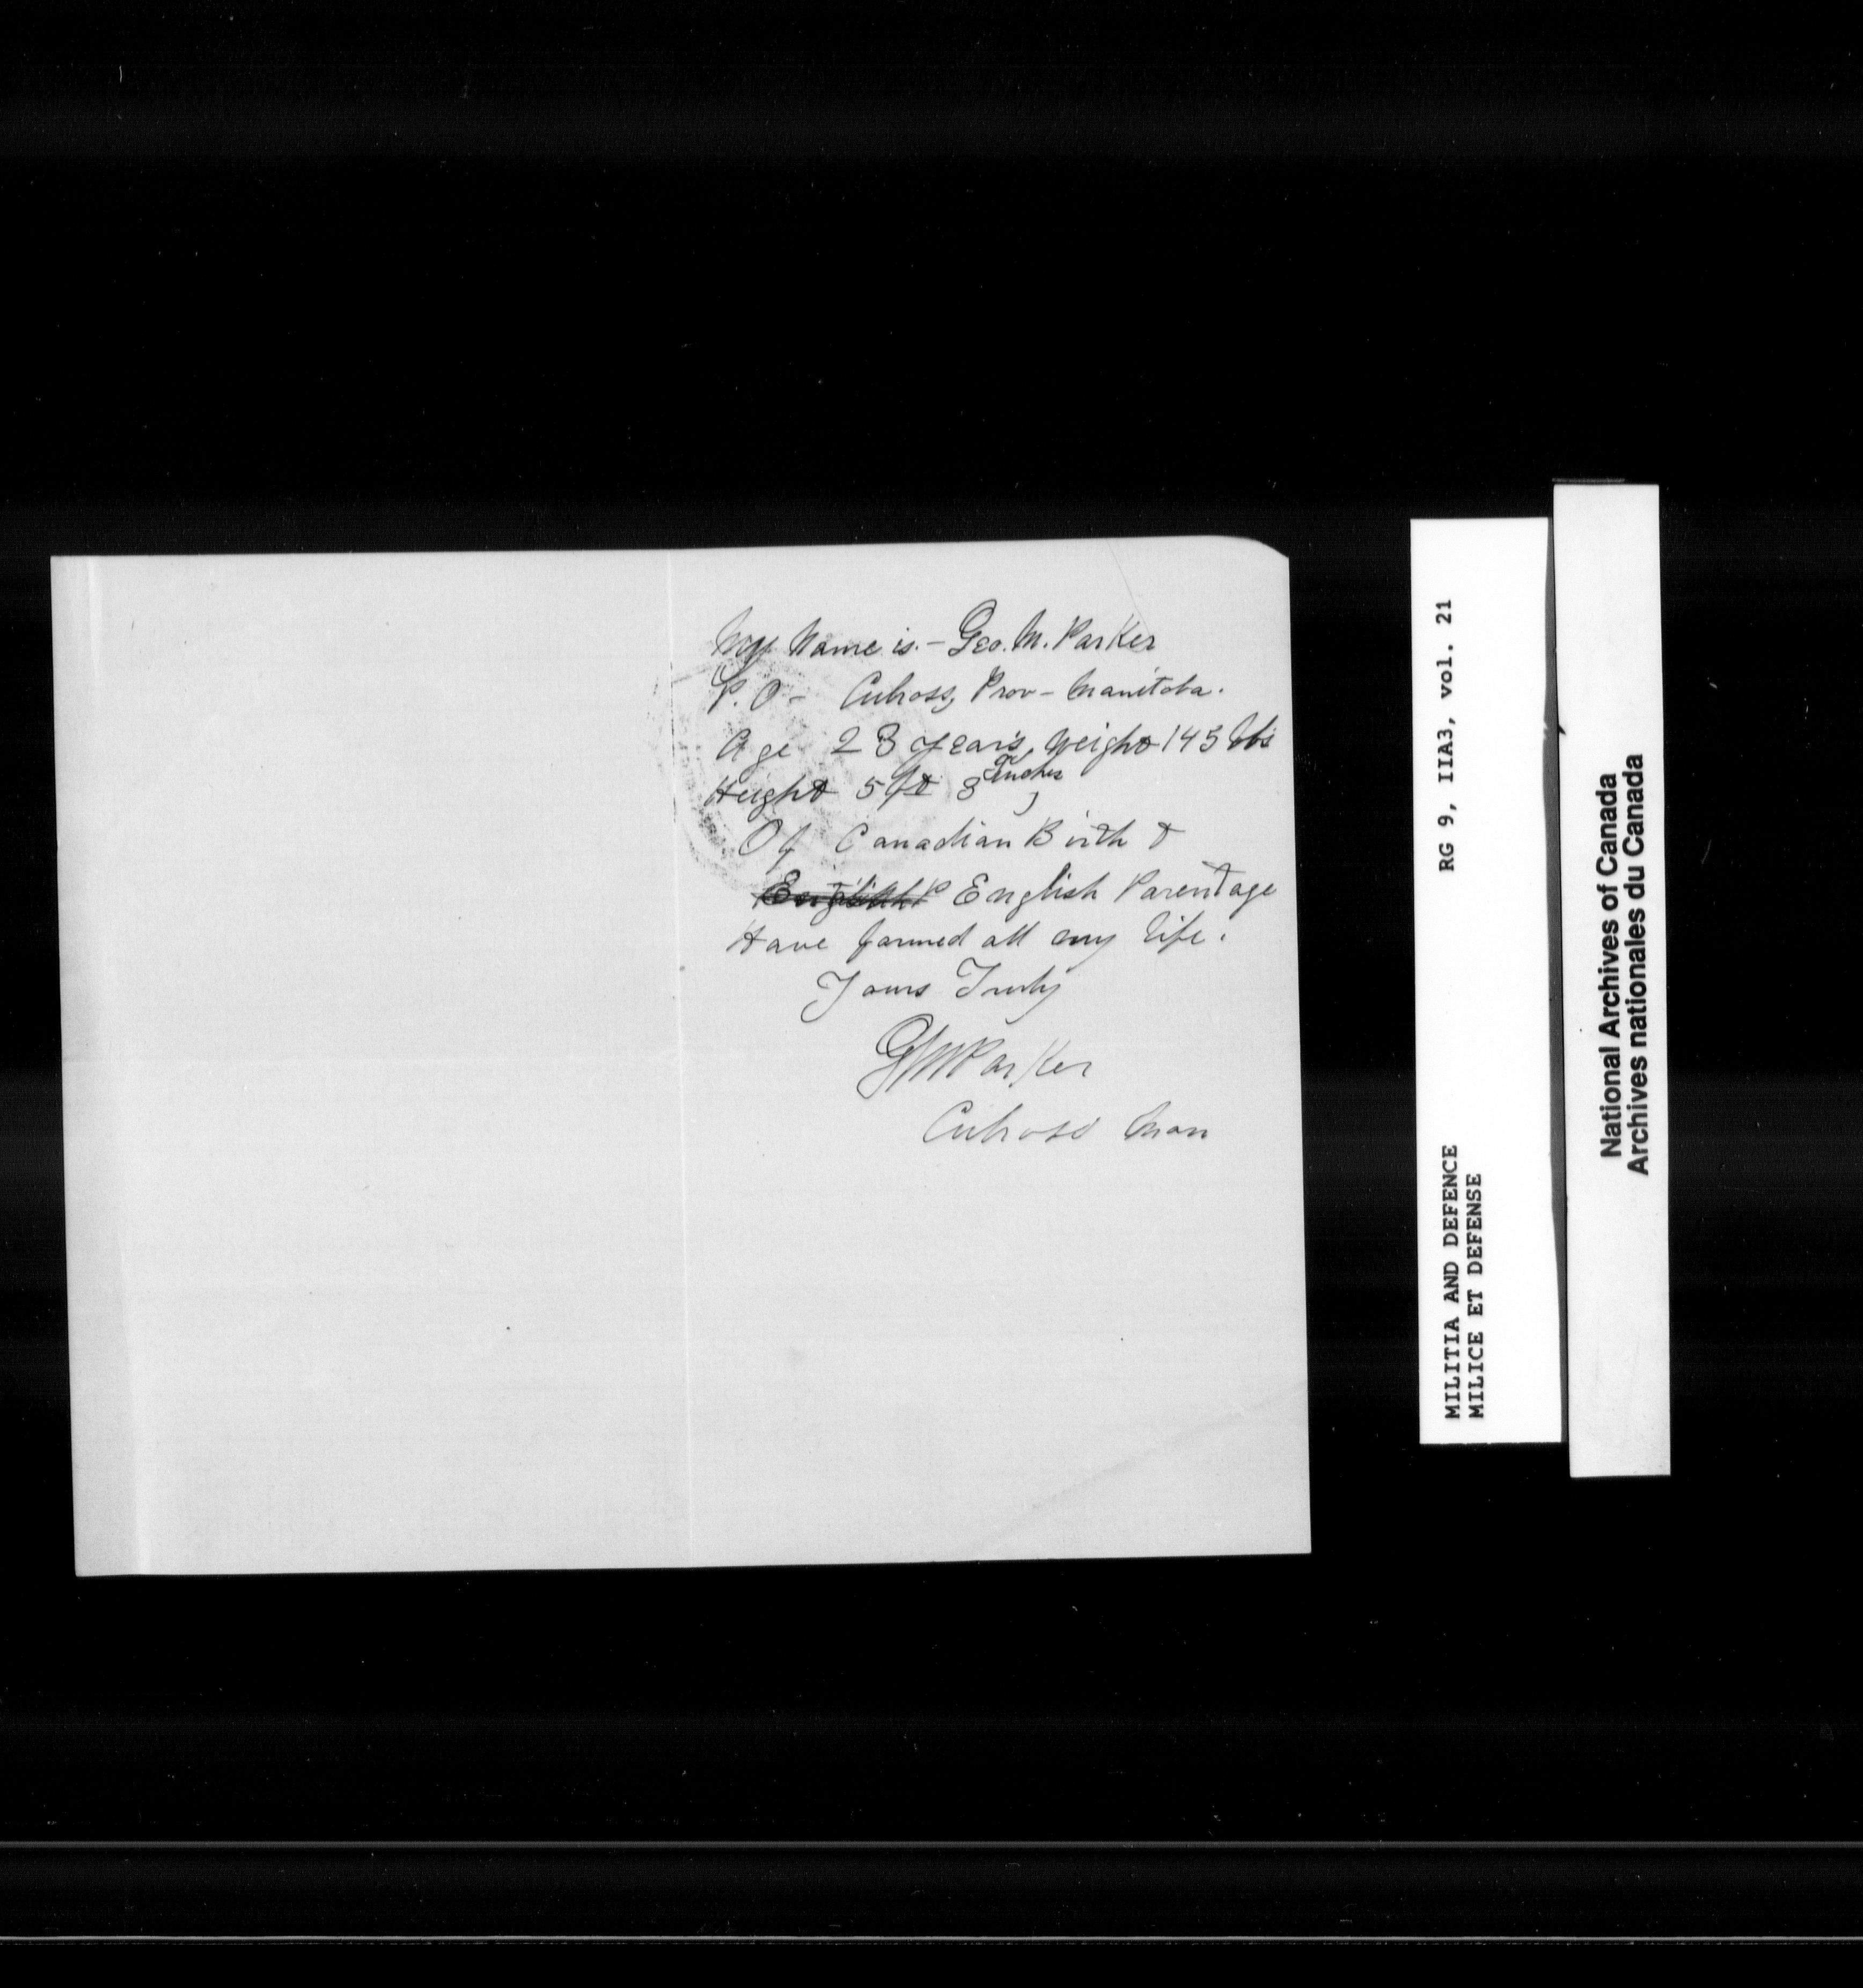 My Name is.- Geo. M. Parker
P. O- Culross, Prov- Manitoba.
Age 23 years, Weight 145 lbs
Height 5 ft 8 Inches,
Of Canadian Birth &
English P English Parentage
Have farmed all my life.
Yours Truly
G M Parker
Culross Man
RG 9, IIA3, vol. 21
MILITIA AND DEFENCE
MILICE ET DEFENSE
National Archives of Canada
Archives nationales du Canada